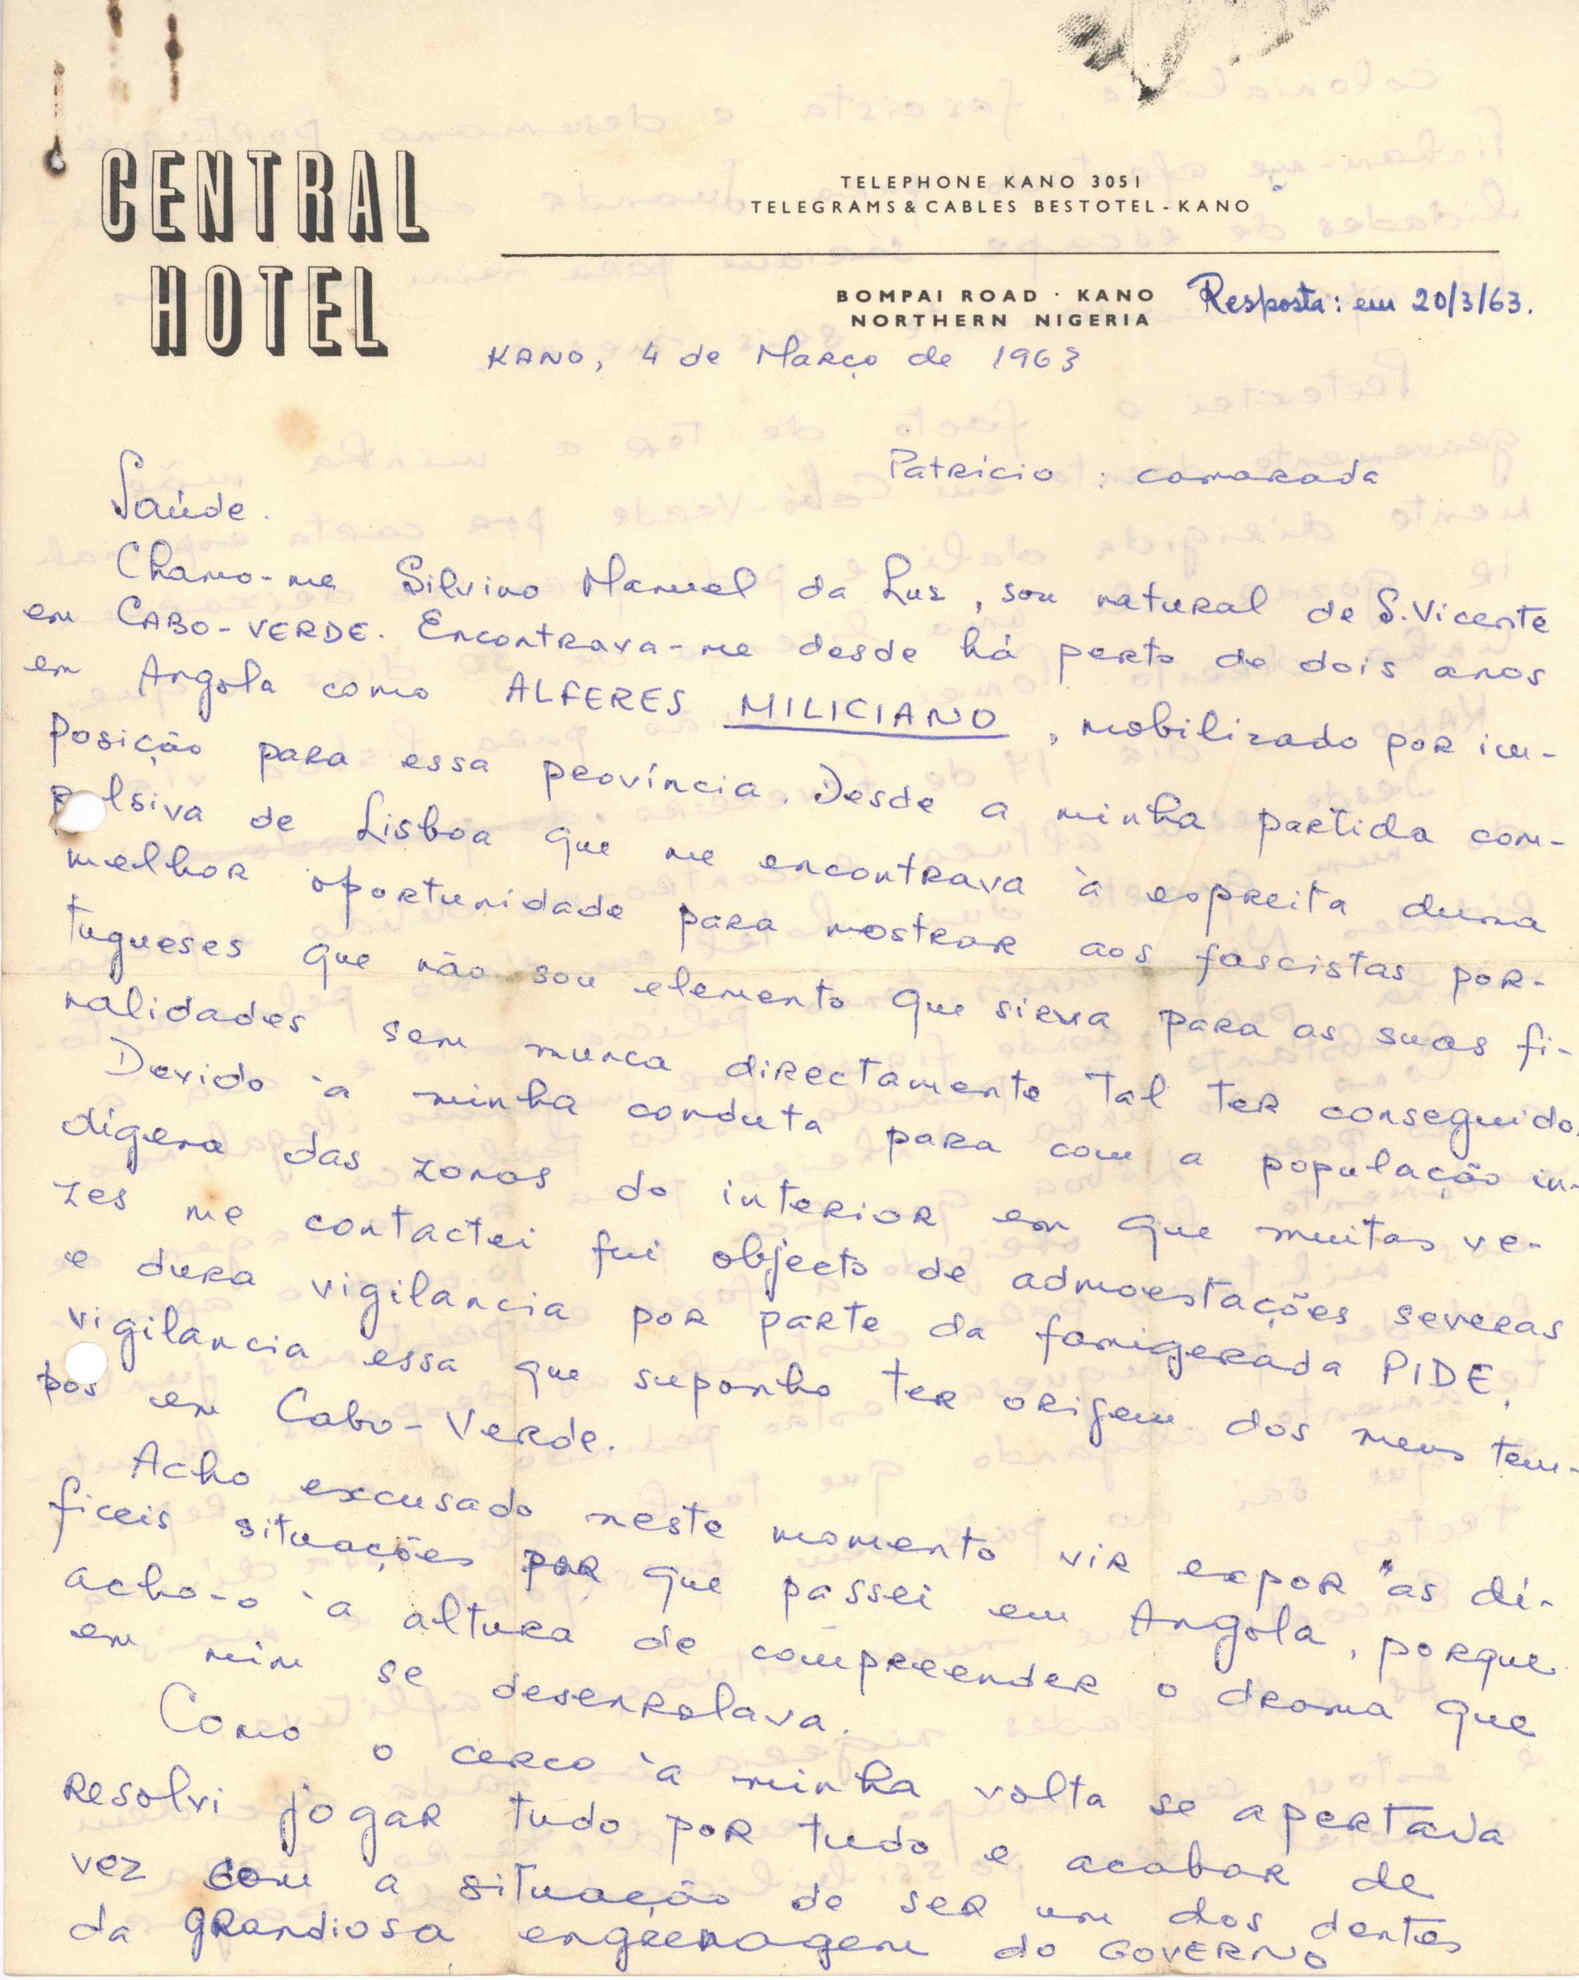 CENTRAL
HOTEL
TELEPHONE KANO 3051
TELEGRAMS & CABLES BESTOTEL - KANO
BOMPAI ROAD · KANO
NORTHERN NIGERIA
Resposta: em 20/3/63.
KANO, 4 de Março de 1963
Patrício : camarada
Saúde.
Chamo-me Silvino Manuel da Luz, sou natural de S. Vicente
em CABO-VERDE. Encontrava-me desde há perto de dois anos
em Angola como ALFERES MILICIANO, mobilizado por im-
posição para essa província. Desde a minha partida com-
pulsiva de Lisboa que me encontrava à espreita duma
melhor oportunidade para mostrar aos fascistas por-
tugueses que não sou elemento que sirva para as suas fi-
nalidades sem nunca directamente tal ter conseguido.
Devido à minha conduta para com a população in-
dígena das zonas do interior em que muitas ve-
zes me contactei fui objecto de admoestações severas
e dura vigilancia por parte da famigerada PIDE,
vigilancia essa que suponho ter origem dos meus tem-
pos em Cabo-Verde.
Acho excusado neste momento vir expor as di-
ficeis situações por que passei em Angola, porque
acho-o à altura de compreender o drama que
em mim se desenrolava.
Como o cerco à minha volta se apertava
resolvi jogar tudo por tudo e acabar de
vez com a situação de ser um dos dentes
da grandiosa engrenagem do GOVERNO